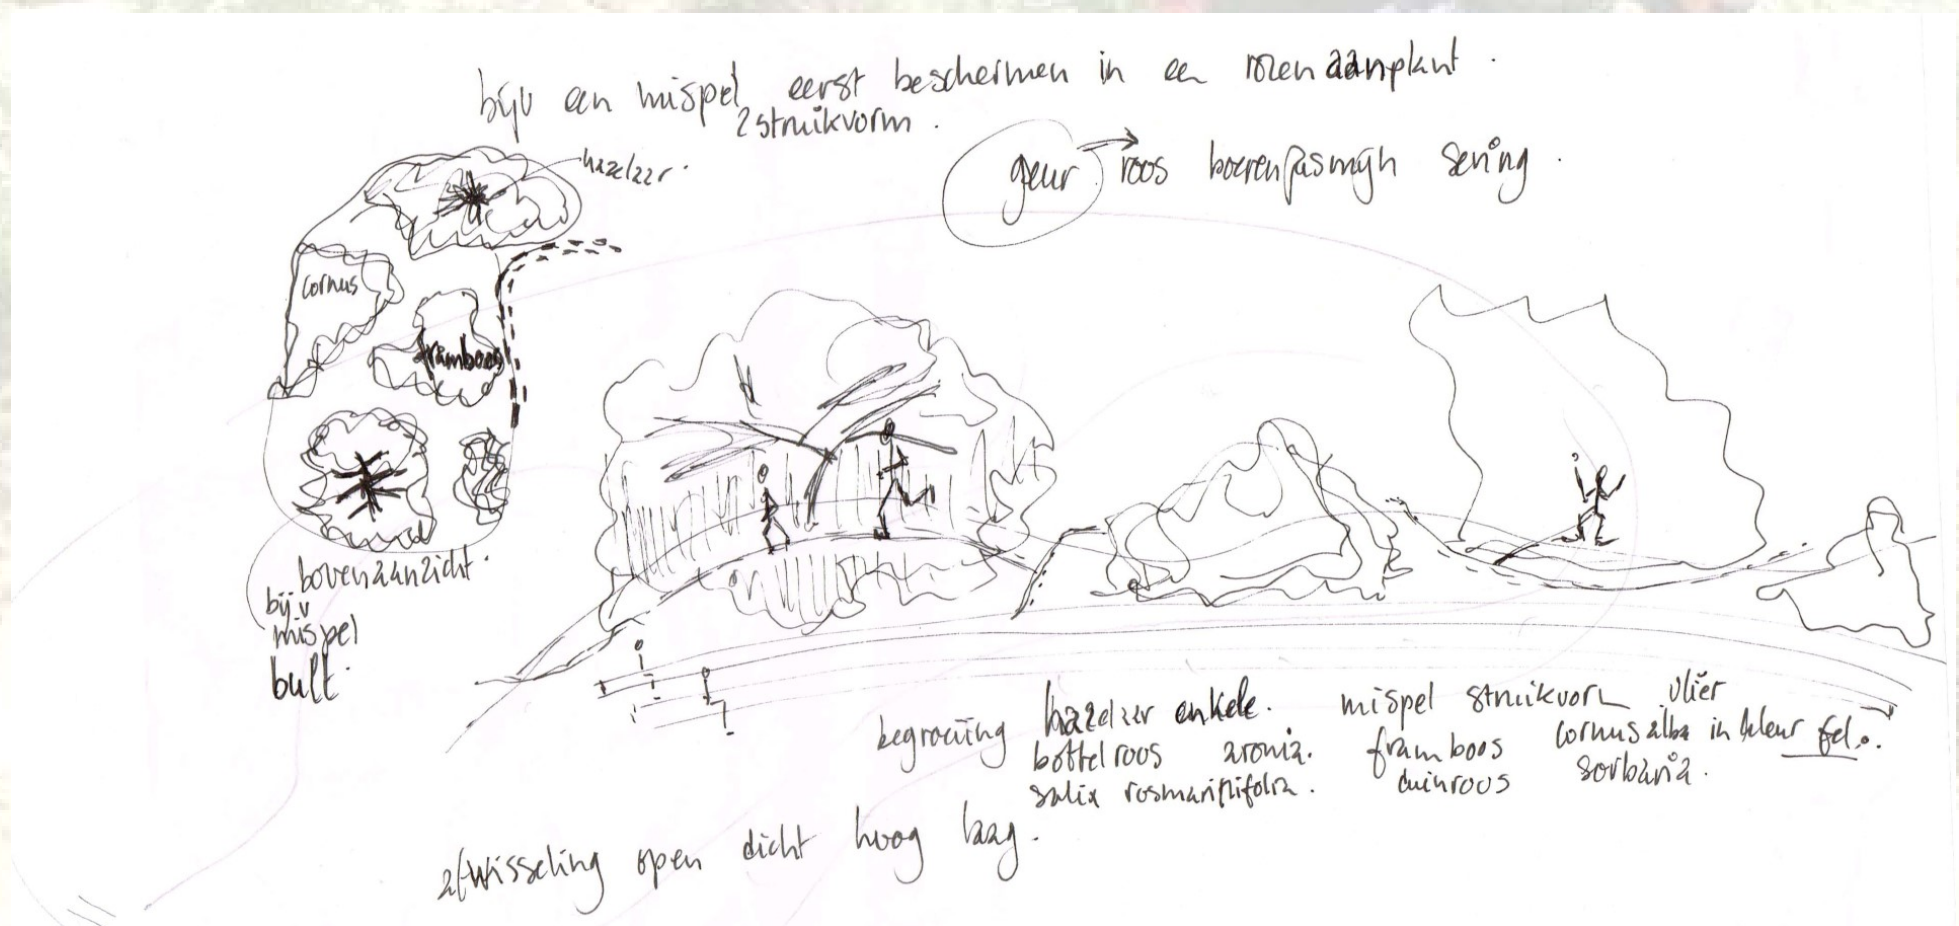 bijv een mispel eerst beschermen in een rozen aanplant.
2 struikvorm.
hazelaar.
geur → roos boerenjasmijn sering.
cornus
framboos
bovenaanzicht.
bijv
mispel
bult.
begroeiing hazelaar enkele. mispel struikvorm vlier
bottelroos aronia. framboos cornus alba in kleur fel.
salix rosmarinifolia. duinroos sorbaria.
afwisseling open dicht hoog laag.